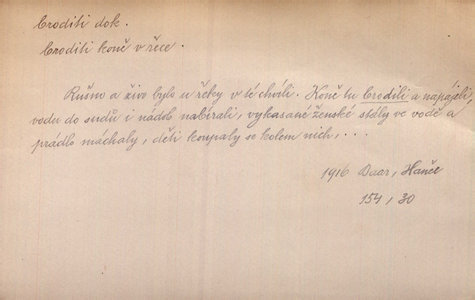 broditi dok.
broditi koně v řece.
Rušno a živo bylo u řeky v té chvíli. Koně tu brodili a napájeli,
vodu do sudů i nádob nabírali, vykasané ženské stály ve vodě a
prádlo máchaly, děti koupaly se kolem nich, ...
1916 Baar, Hanče
154, 30